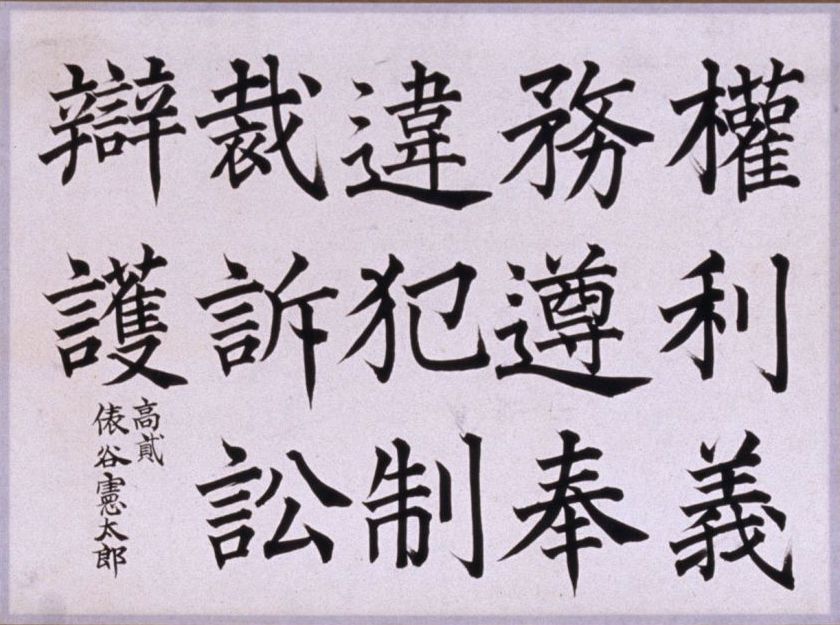 權利義
務遵奉
違犯制
裁訴訟
辯護
高貳
俵谷憲太郎